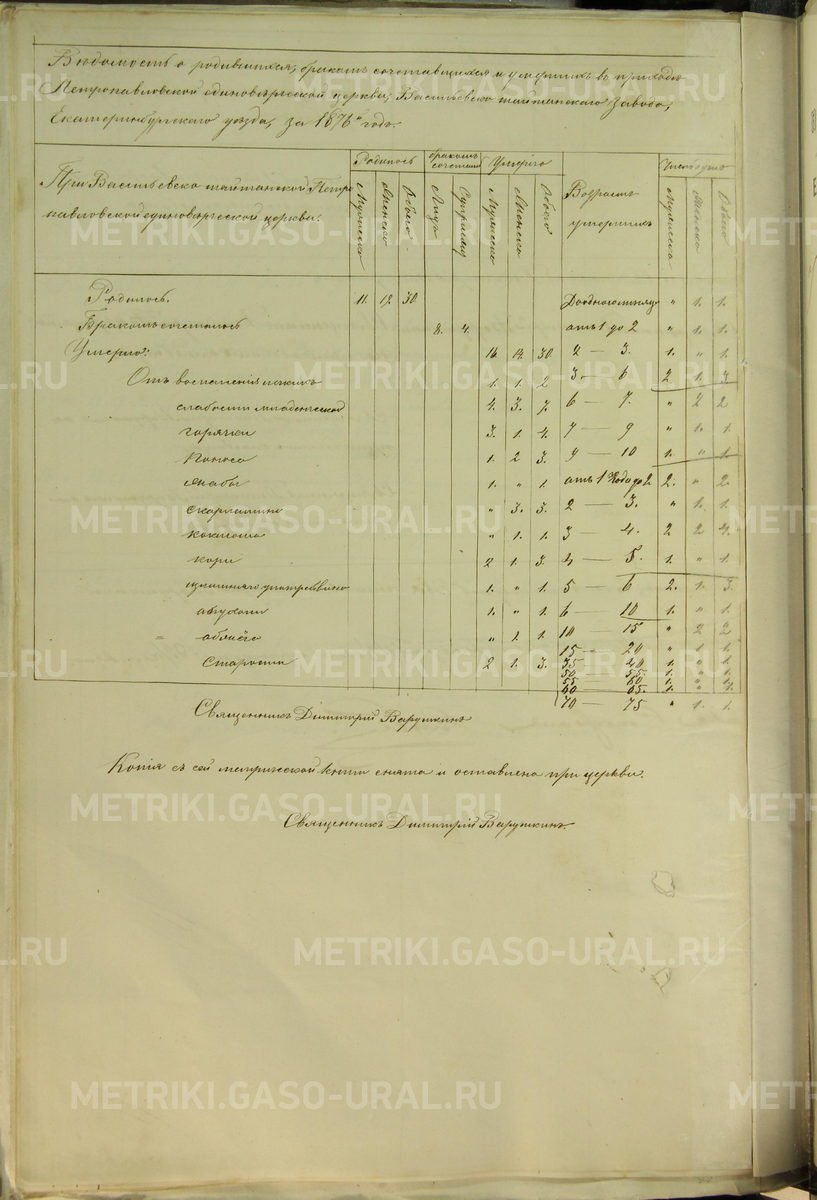 Вѣдомость о родившихся, бракомъ сочетавшихся и умершихъ въ приходѣ
Петропавловской единовѣрческой церкви, Васильевско шайтанскаго завода,
Екатеринбургскаго уѣзда, за 1876й годъ.
При Васильевско шайтанской Петро
павловской единовѣрческой церкви.
Родилось Бракомъ сочетались Умерло Возрастъ умершихъ Число душъ
Мужеска Женска Обоего Лицъ Супружествъ Мужеска Женска Обоего Мужеска Женска Обоего
Родилось. 11. 19. 30 До одного мѣсяца " 1. 1.
Бракомъ сочеталось 8. 4. отъ 1 до 2 " 1. 1.
Умерло: 16. 14. 30 2 — 3. 1. " 1.
Отъ воспаленія 1. 1. 2 3. — 6 2 1. 3.
слабости младенческой 4. 3. 7. 6 — 7. " 2 2
горячки 3. 1. 4. 7 — 9 " 1. 1.
поноса 1. 2 3. 9 — 10 1. " 1.
жабы 1. " 1. отъ 1 года до 2 2. " 2.
скарлатины " 3. 3. 2 — 3. " 1. 1.
коклюша " 1. 1. 3 — 4. 2 2 4.
кори 2 1. 3. 4 — 5. 1. " 1.
1. " 1. 5 — 6 2. 1. 3
1. " 1. 6 — 10 1. " 1.
" 1 1. 10 — 15 " 2 2
15 — 20 " 1 1
старости 2 1. 3. 35 40 1. " 1.
50 — 55. 1. " 1.
55 60 1. " 1.
60 — 65. 1. " 1.
70 — 75 " 1. 1.
Священникъ Димитрій Варушкинъ
Копія съ сей метрической книги снята и оставлена при церкви.
Священникъ Димитрій Варушкинъ.
METRIKI.GASO-URAL.RU